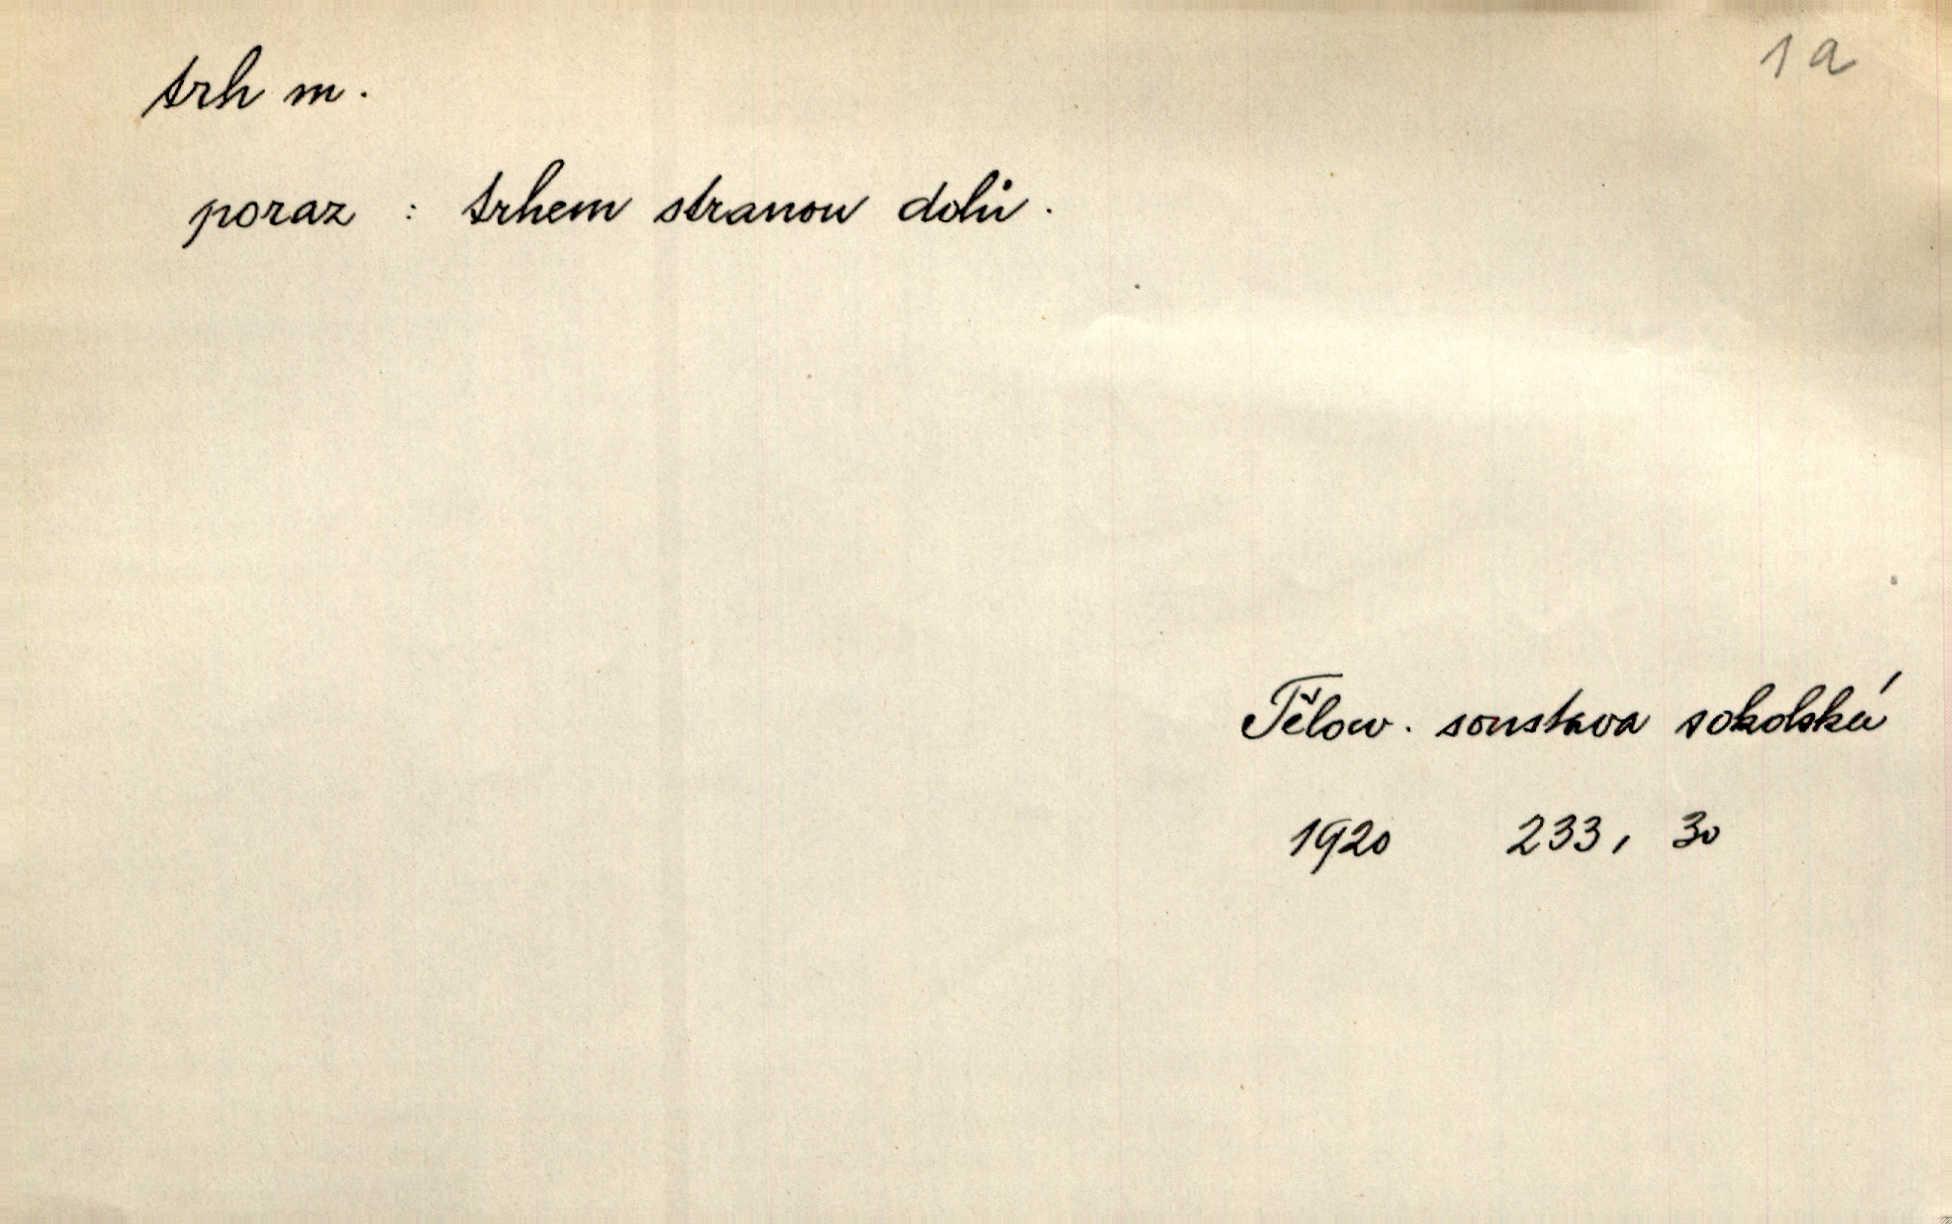 1a
trh m.
poraz : trhem stranou dolů.
Tělocv. soustava sokolská
1920 233, 30